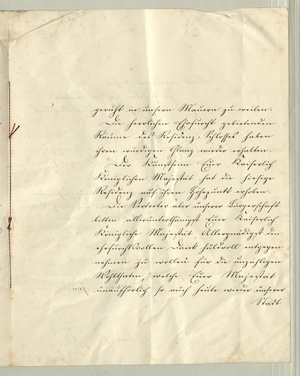 geruht in unsern Mauern zu weilen.
Die herrlichen Ehrfurcht gebietenden
Räume des Residenz-Schlosses haben
ihren würdigen Glanz wieder erhalten.
Der Kunstsinn Euer Kaiserlich
Königlichen Majestät hat die hiesige
Residenz auf ihren Höhepunkt erhoben.
Die Vertreter aber unserer Bürgerschaft
bitten allerunterthänigst Euer Kaiserlich
Königliche Majestät Allergnädigst den
ehrfurchtsvollen Dank huldvoll entgegen
nehmen zu wollen für die unzähligen
Wohlthaten, welche Euer Majestät
unaufhörlich so auch heute wieder unserer
Stadt